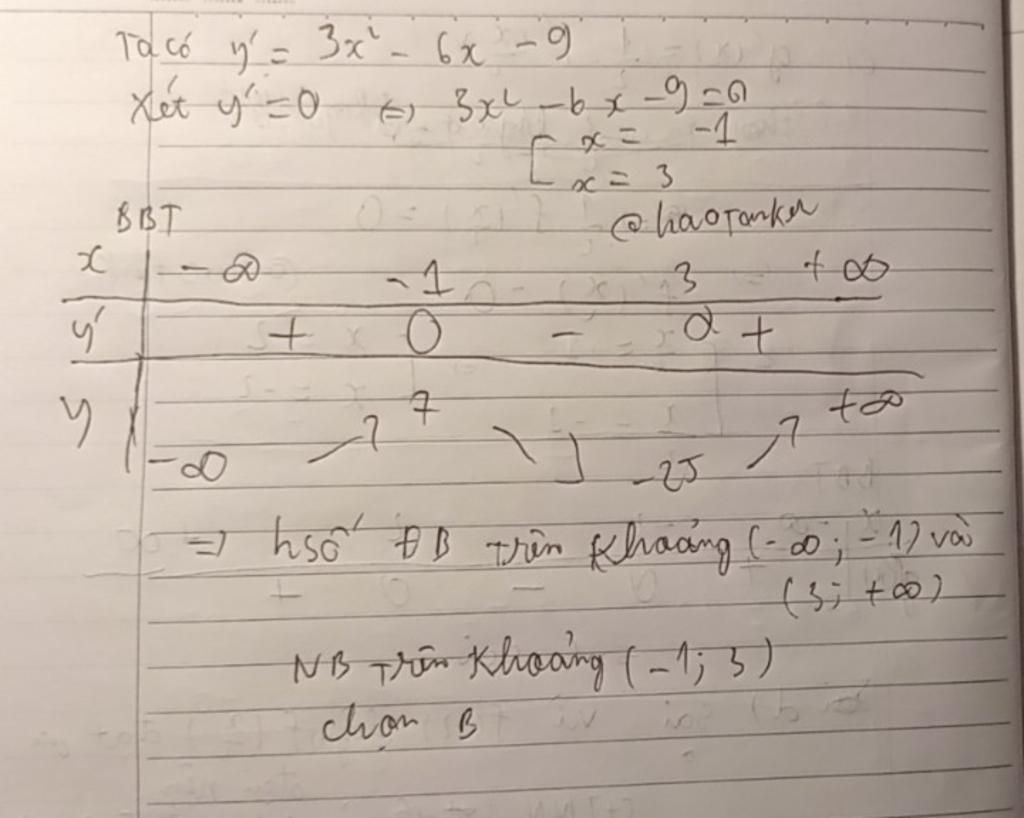 Ta có y' = 3x² - 6x - 9
Xét y' = 0 ⇔ 3x² - 6x - 9 = 0
[ x = -1
x = 3
@haoTanker
BBT
x -∞ -1 3 +∞
y' + 0 - 0 +
y -∞ ↗ 7 ↘ -25 ↗ +∞
=> hsố ĐB trên khoảng (-∞; -1) và
(3; +∞)
NB trên khoảng (-1; 3)
chọn B